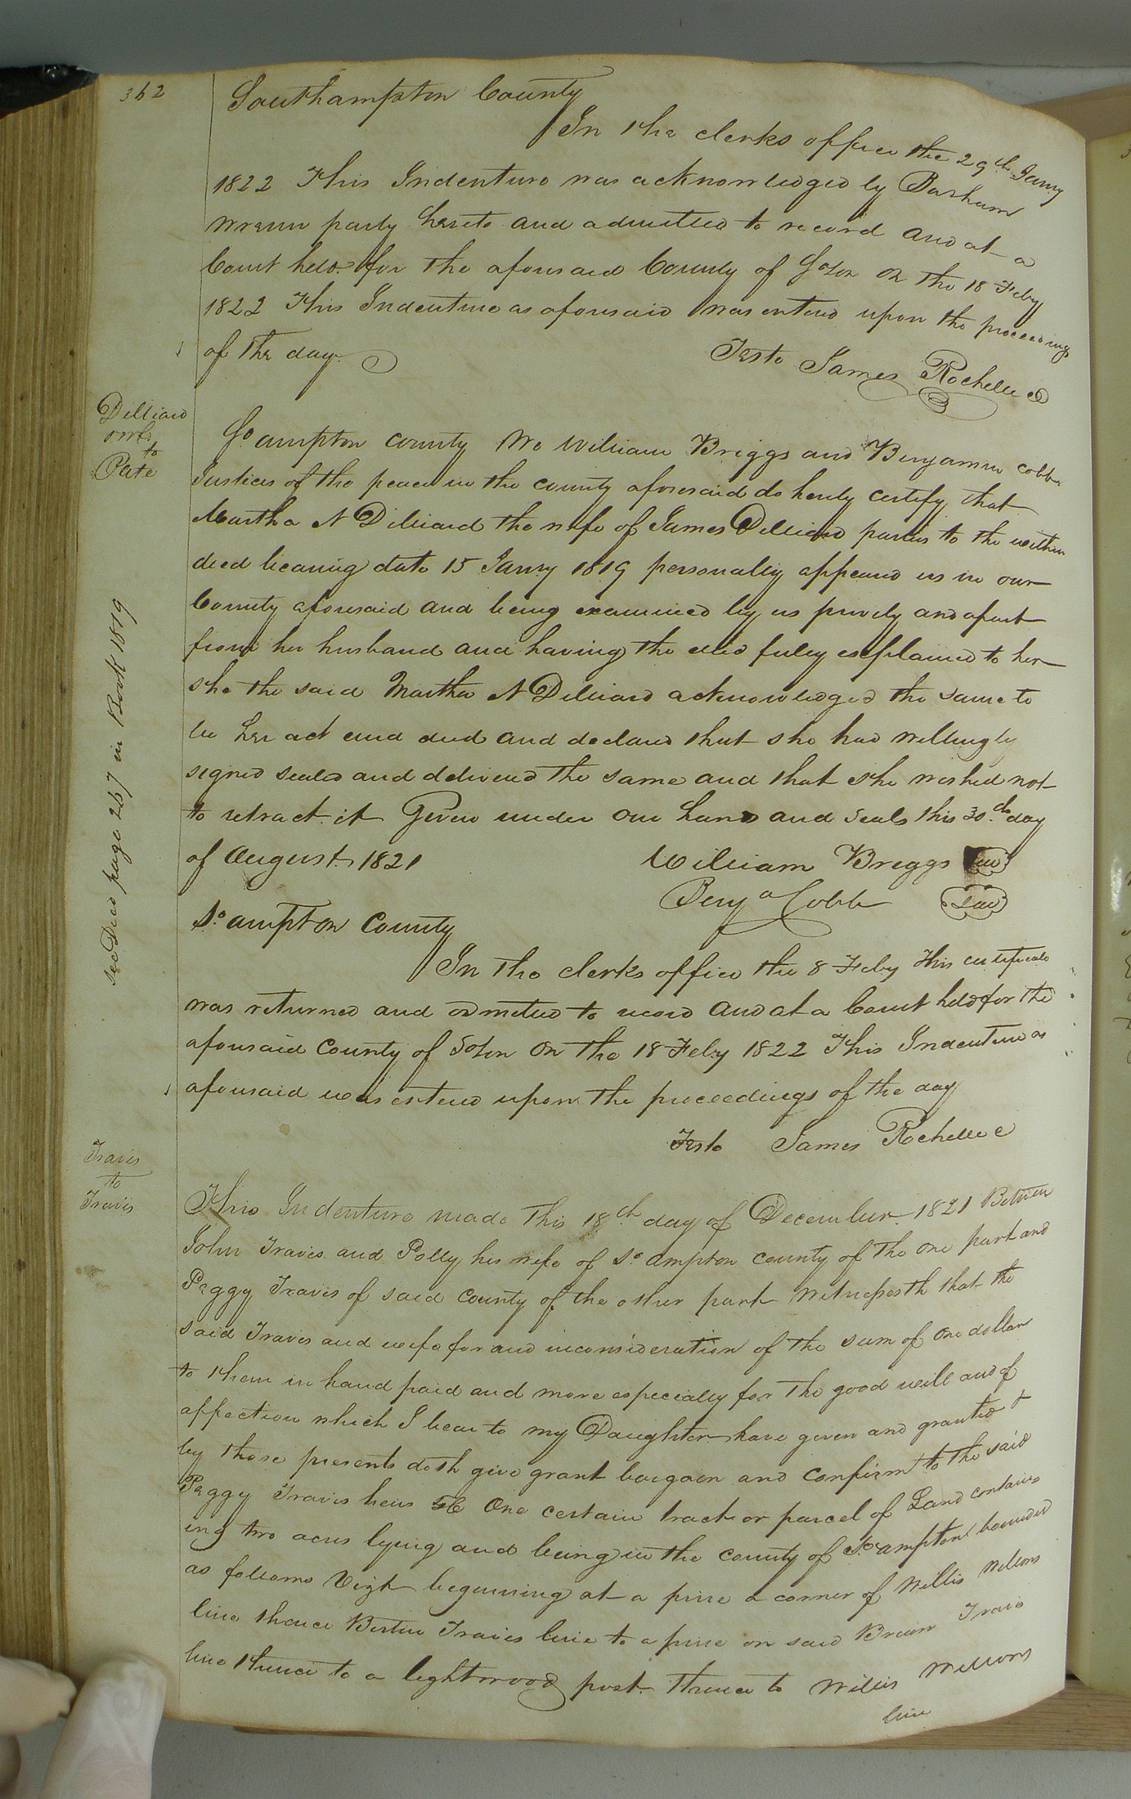 362
Southampton County
In the clerks office the 29th Janry
1822 This Indenture was acknowledged by Barham
Wrenn party hereto and admitted to record and at a
Court held for the aforesaid County of Soton on the 18 Feby
1822 This Indenture as aforesaid was entered upon the proceedings
of the day.
Teste James Rochelle C
Dilliard
to
Pate
So ampton county We William Briggs and Benjamin Cobb
Justices of the peace in the county aforesaid do hereby certify that
Martha N Dilliard the wife of James Dilliard parties to the within
deed bearing date 15 Janry 1819 personally appeard us in our
County aforesaid and being examined by us privily and apart
from her husband and having the deed fully explained to her
she the said Martha N Dilliard acknowledged the same to
be her act and deed and declared that she had willingly
signed sealed and delivered the same and that she wished not
to retract it Given under our hand and seals this 30th day
of August 1821
William Briggs
Benja Cobb
see Deed page 267 in Book 1819
So ampton County
In the clerks office the 8 Feby This certificate
was returned and admitted to record and at a Court held for the
aforesaid County of Soton on the 18 Feby 1822 This Indenture as
aforesaid was entered upon the proceedings of the day
Teste James Rochelle C
Travis
to
Travis
This Indenture made this 18th day of December 1821 Between
John Travis and Polly his wife of So ampton county of the one part and
Peggy Travis of said county of the other part Witnesseth that the
said Travis and wife for and inconsideration of the sum of one dollar
to them in hand paid and more especially for the good will and of
affection which I bear to my Daughter have given and granted &
by these presents doth give grant bargain and confirm to the said
Peggy Travis heirs &C One certain tract or parcel of Land contain
ing two acres lying and being in the county of So ampton bounded
as follows Vizt beginning at a pine a corner of Willis Wellons
line thence Travis line to a pine on said Travis
line thence to a lightwood post thence to Willis Wellons
line